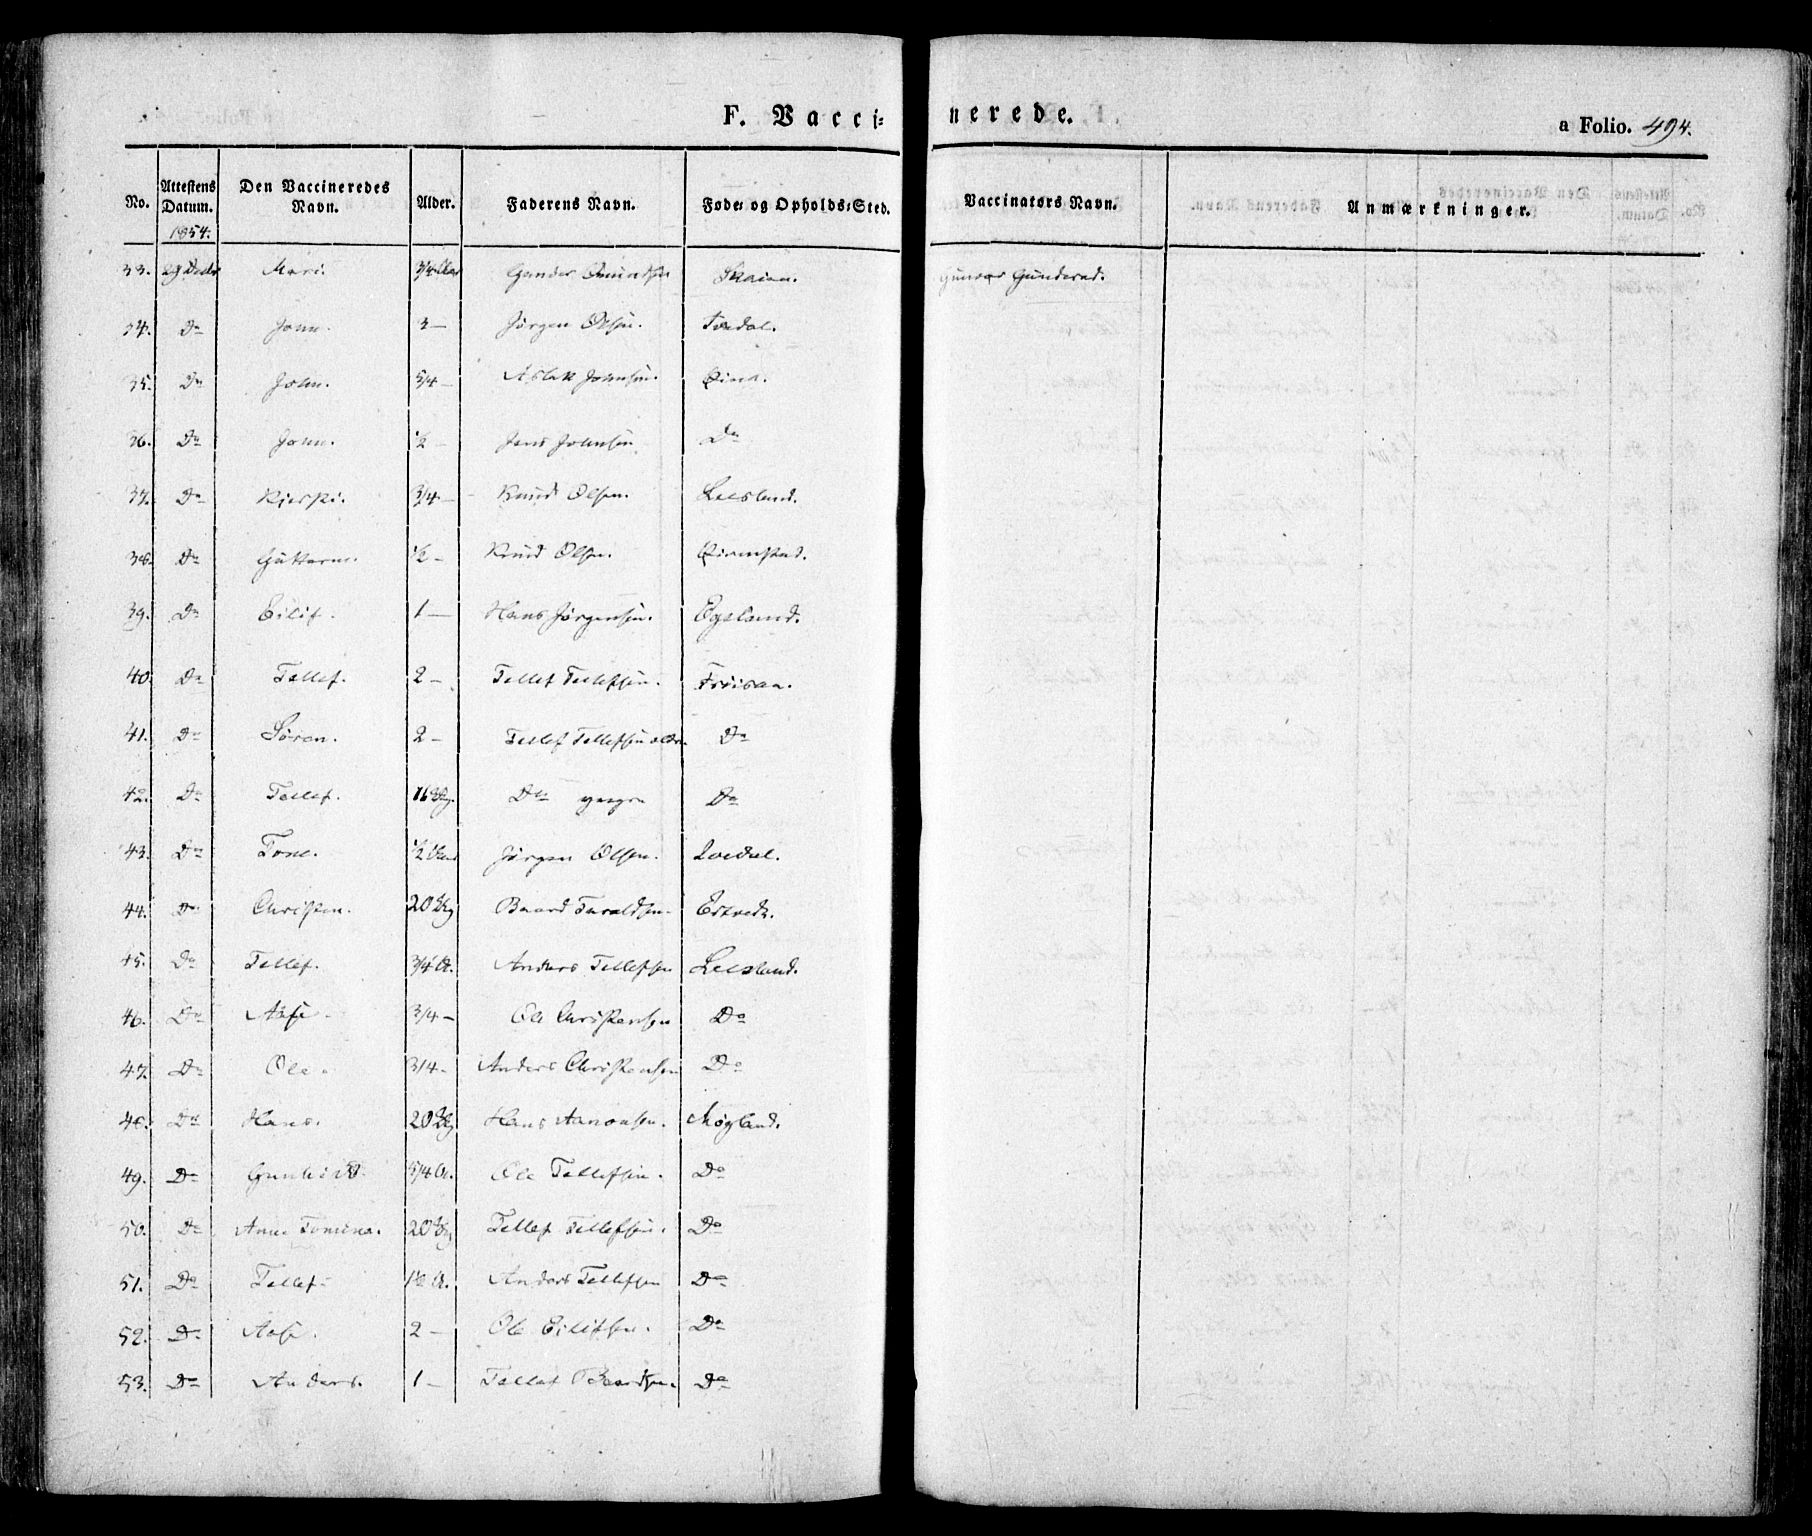 F. Vacci=nerede.
a Folio. 494.
No. Attestens Datum. Den Vaccineredes Navn. Alder. Faderens Navn. Føde= og Opholds=Sted. Vaccinators Navn. Anmærkninger.
1854.
33. Mari. 3/4 Gunder Omundsen Skaien. Gunder
34. Do 3 — Jørgen Olsen. Tvedal.
35. Do John. 5/4 — Aslak Johnsen.
36. Do ½ — Jens Johnsen Do
37. Do 3/4 — Knud Olsen. Leesland.
38. Do ½ — Knud Olsen.
39. Do Eilif. 1 — Hans Jørgensen. Egeland.
40. Do Tellef. 2 — Tellef Tellefsen.
41. Do Søren. 2 — Tellef Tellefsen Do
42. Do Tellef. 16 Do yngre Do
43. Do Tone. ½ Jørgen Olsen.
44. Do Christen. 20 Baard Taraldsen. Ertveds.
45. Do Tellef. 3/4 A. Anders Tellefsen Leesland.
46. Do Aase 3/4 — Ole Christensen Do
47. Do Ole. 3/4 — Anders Christensen Do
48. Do Hans. 20 Hans Aanonsen. Møgland.
49. Do Gunhild 5/4 A. Ole Tellefsen. Do
50. Do Anne Tomina. 20 Tellef Tellefsen. Do
51. Do Tellef 1½ A. Anders Tellefsen Do
52. Do Aase. 2 — Ole Eilifsen. Do
53. Do Anders. 1 — Tellef Baardsen. Do